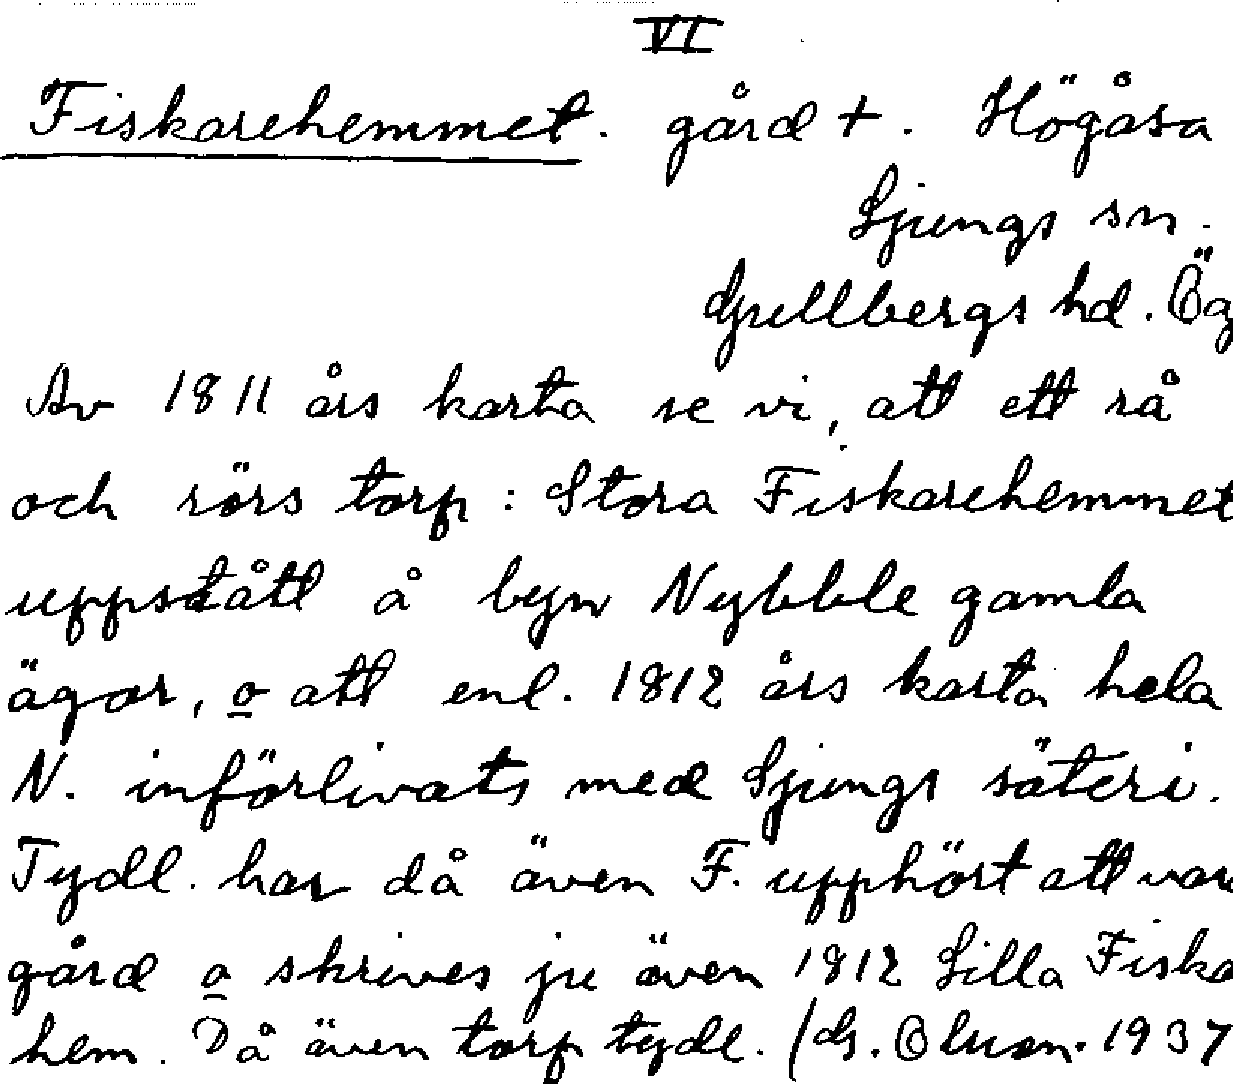 VI
Fiskarehemmet. gård +. Högåsa
Ljungs sn.
Gullbergs hd. Ög
Av 1811 års karta se vi, att ett rå
och rörs torp: Stora Fiskarehemmet
uppstått å byn Nybble gamla
ägor, o att enl. 1812 års karta hela
N. införlivats med Ljungs säteri.
Tydl. har då även F. upphört att vara
gård o skrives ju även 1812 Lilla Fiska
hem. Då även torp tydl. (G. Olson. 1937